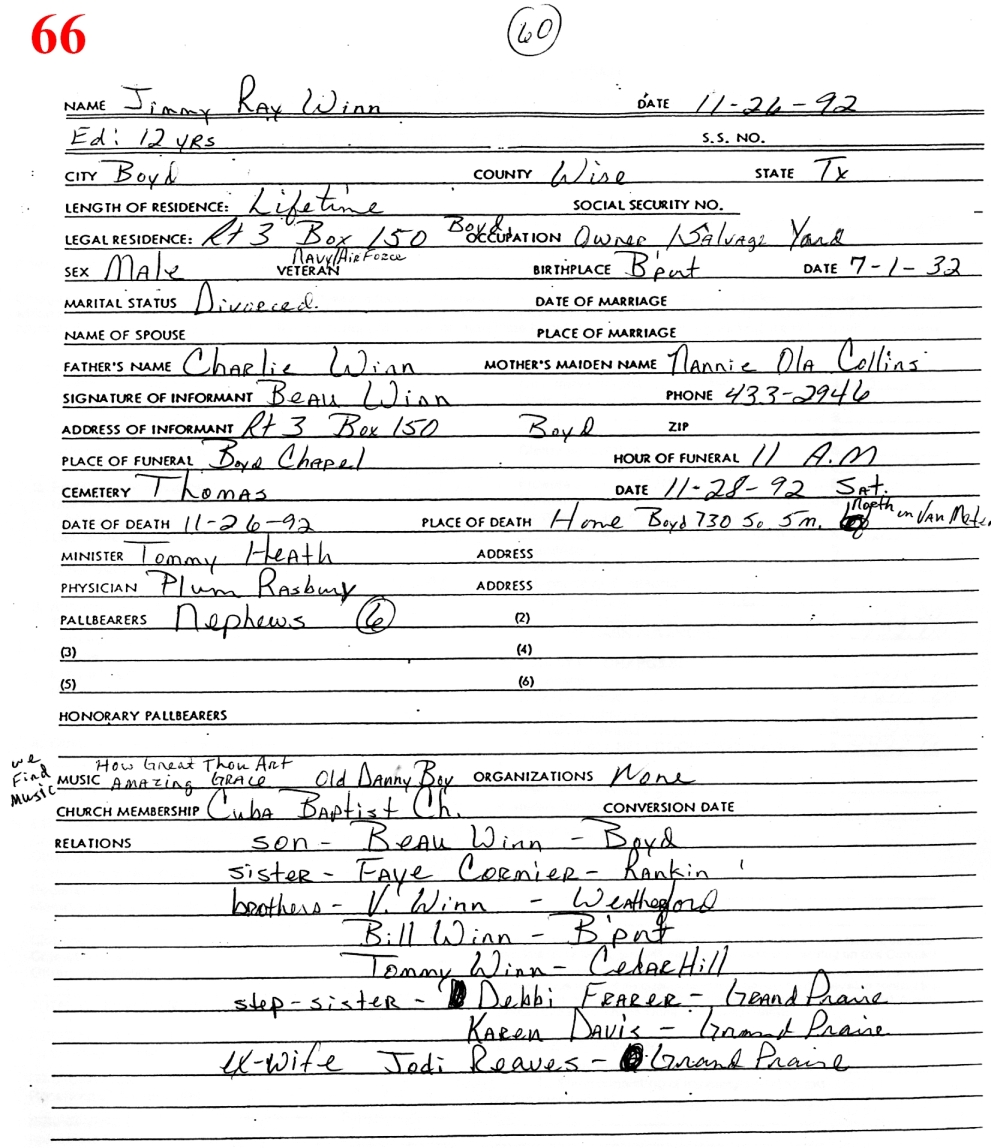 66
60
NAME Jimmy Ray Winn DATE 11-26-92
Ed: 12 yrs S.S. NO.
CITY Boyd COUNTY Wise STATE Tx
LENGTH OF RESIDENCE: Lifetime SOCIAL SECURITY NO.
LEGAL RESIDENCE: Rt 3 Box 150 Boyd OCCUPATION Owner / Salvage Yard
SEX Male VETERAN Navy/Air Force BIRTHPLACE B'port DATE 7-1-32
MARITAL STATUS Divorced. DATE OF MARRIAGE
NAME OF SPOUSE PLACE OF MARRIAGE
FATHER'S NAME Charlie Winn MOTHER'S MAIDEN NAME Nannie Ola Collins
SIGNATURE OF INFORMANT Beau Winn PHONE 433-2946
ADDRESS OF INFORMANT Rt 3 Box 150 Boyd ZIP
PLACE OF FUNERAL Boyd Chapel HOUR OF FUNERAL 11 A.M
CEMETERY Thomas DATE 11-28-92 Sat.
DATE OF DEATH 11-26-92 PLACE OF DEATH Home Boyd 730 So 5 m. North on Van Meter
MINISTER Tommy Heath ADDRESS
PHYSICIAN Plum Rasbury ADDRESS
PALLBEARERS Nephews 6 (2)
(3) (4)
(5) (6)
HONORARY PALLBEARERS
we Find Music
How Great Thou Art
MUSIC Amazing Grace Old Danny Boy ORGANIZATIONS None
CHURCH MEMBERSHIP Cuba Baptist Ch. CONVERSION DATE
RELATIONS son - Beau Winn - Boyd
sister - Faye Cormier - Rankin
brothers - V. Winn - Weatherford
Bill Winn - B'port
Tommy Winn - Cedar Hill
step-sister - Debbi Frarer - Grand Praire
Karen Davis - Grand Praire
ex-wife Jodi Reaves - Grand Praire